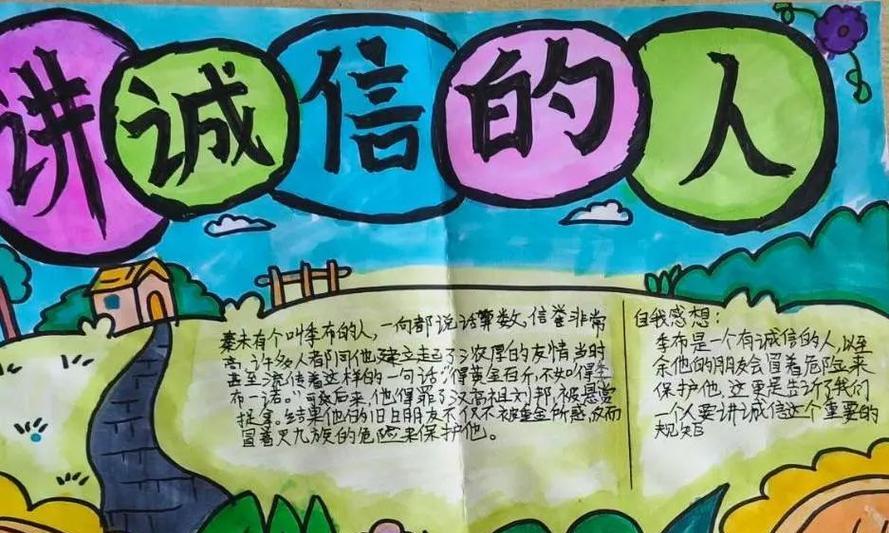 讲诚信的人
秦末有个叫季布的人,一向都说话算数,信誉非常
高,许多人都同他建立起了浓厚的友情。当时
甚至流传着这样的一句话:"得黄金百斤,不如得季
布一诺。"可致后来,他得罪了汉高祖刘邦,被悬赏
捉拿。结果他的旧日朋友不仅不被重金所惑,反而
冒着灭九族的危险来保护他。
自我感想:
季布是一个有诚信的人,以至
余他的朋友会冒着危险来
保护他,这里是告诉了我们
一个人要讲诚信这个重要的
规矩